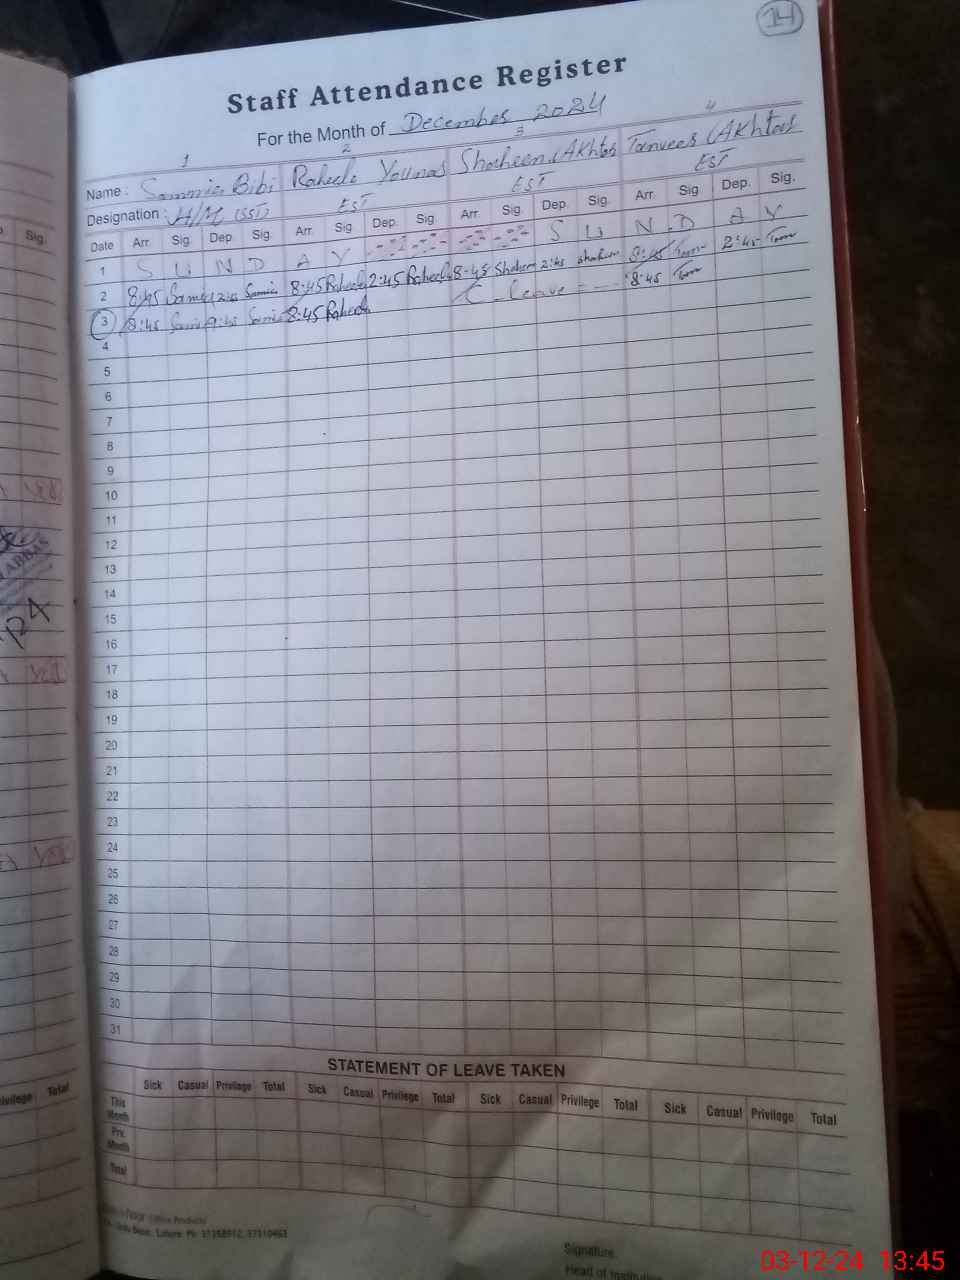 14
Staff Attendance Register
For the Month of December 2024
1 2 3 4
Name : Sammia Bibi Raheela Younas Shaheen Akhtar Tanveer Akhtar
Designation : H/M (SST) EST EST EST
Date Arr. Sig. Dep. Sig. Arr. Sig. Dep. Sig. Arr. Sig. Dep. Sig. Arr. Sig. Dep. Sig.
1 S U N D A Y S U N D A Y
2 8:45 Samia 2:45 Samia 8:45 Raheela 2:45 Raheela 8:45 Shaheen 2:45 Shaheen 8:45 2:45
3 8:45 Samia Samia 8:45 Raheela C. leave 8:45
4
5
6
7
8
9
10
11
12
13
14
15
16
17
18
19
20
21
22
23
24
25
26
27
28
29
30
31
STATEMENT OF LEAVE TAKEN
Sick Casual Privilege Total Sick Casual Privilege Total Sick Casual Privilege Total Sick Casual Privilege Total
This Month
Pre. Month
Total
Office Products
Lahore. Ph: 37358912, 37310463
Signature
Head of Institution
Sig.
ABBAS
Privilege Total
03-12-24 13:45